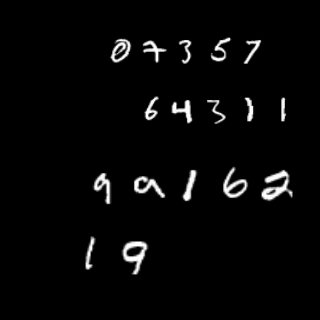 07357
64311
9a162
19